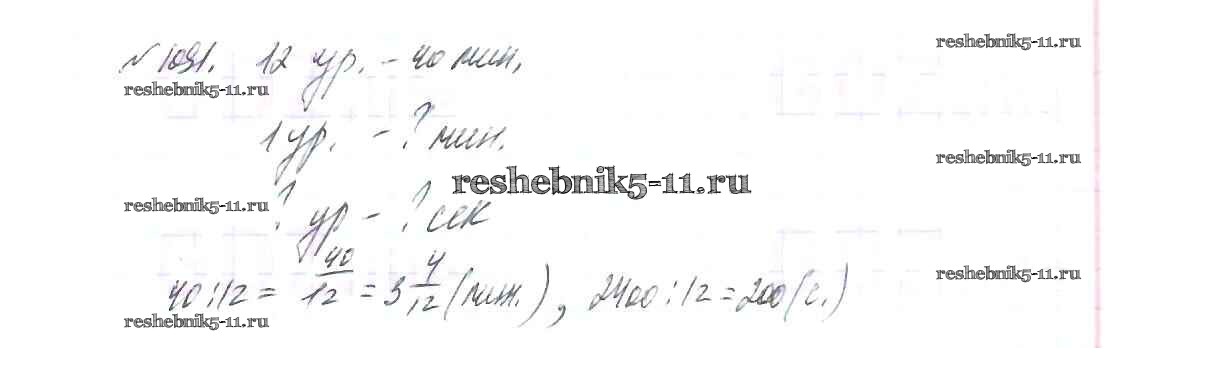 №1091. 12 ур. - 40 мин,
reshebnik5-11.ru
reshebnik5-11.ru
1 ур. - ? мин.
reshebnik5-11.ru
reshebnik5-11.ru
reshebnik5-11.ru
? ур - ? сек
40:12 = 40/12 = 3 4/12 (мин.), 2400:12=200(с.)
reshebnik5-11.ru
reshebnik5-11.ru